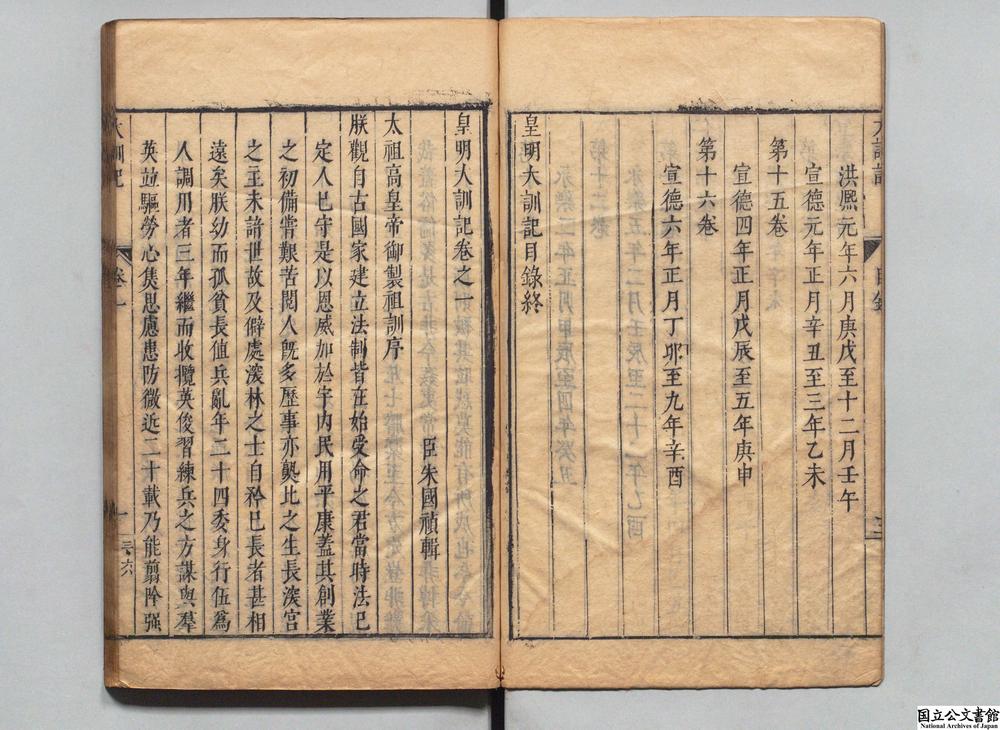 洪熈元年六月庚戌至十二月壬午
宣德元年正月辛丑至三年乙未
第十五卷
宣德四年正月戊辰至五年庚申
第十六卷
宣德六年正月丁邜至九年辛酉
皇明大訓記目錄終
皇明大訓記卷之一
臣朱國禎輯
太祖高皇帝御製祖訓序
朕觀自古國家建立法制皆在始受命之君當時法已
定人已守是以恩威加於宇内民用平康蓋其創業
之初備嘗艱苦閱人旣多歷事亦熟比之生長深宮
之主未諳世故及僻處深林之士自矜巳長者甚相
遠矣朕幼而孤貧長值兵亂年二十四委身行伍爲
人調用者三年繼而收攬英俊習練兵之方謀與羣
英並驅勞心焦思慮患防微近二十載乃能翦除强
大訓記
卷一
一
國立公文書館
National Archives of Japan